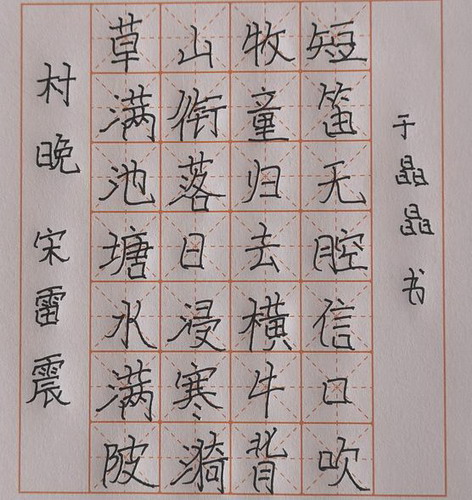 村晚 宋 雷震
草满池塘水满陂
山衔落日浸寒漪
牧童归去横牛背
短笛无腔信口吹
于晶晶书